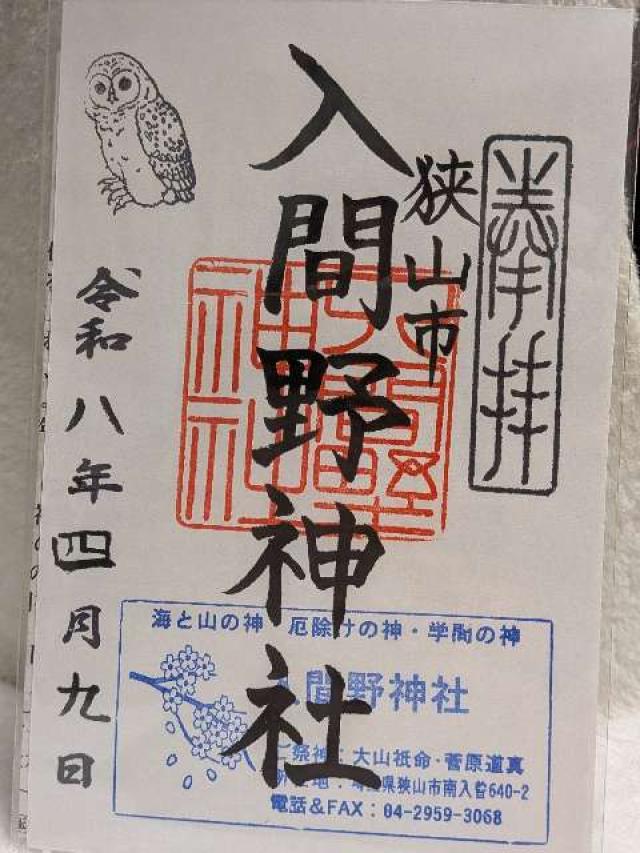 奉拝
狭山市
入間野神社
令和八年四月九日
入間野神社
海と山の神 厄除けの神・学問の神
入間野神社
ご祭神：大山祇命・菅原道真
所在地：埼玉県狭山市南入曽640-2
電話＆FAX：04-2959-3068